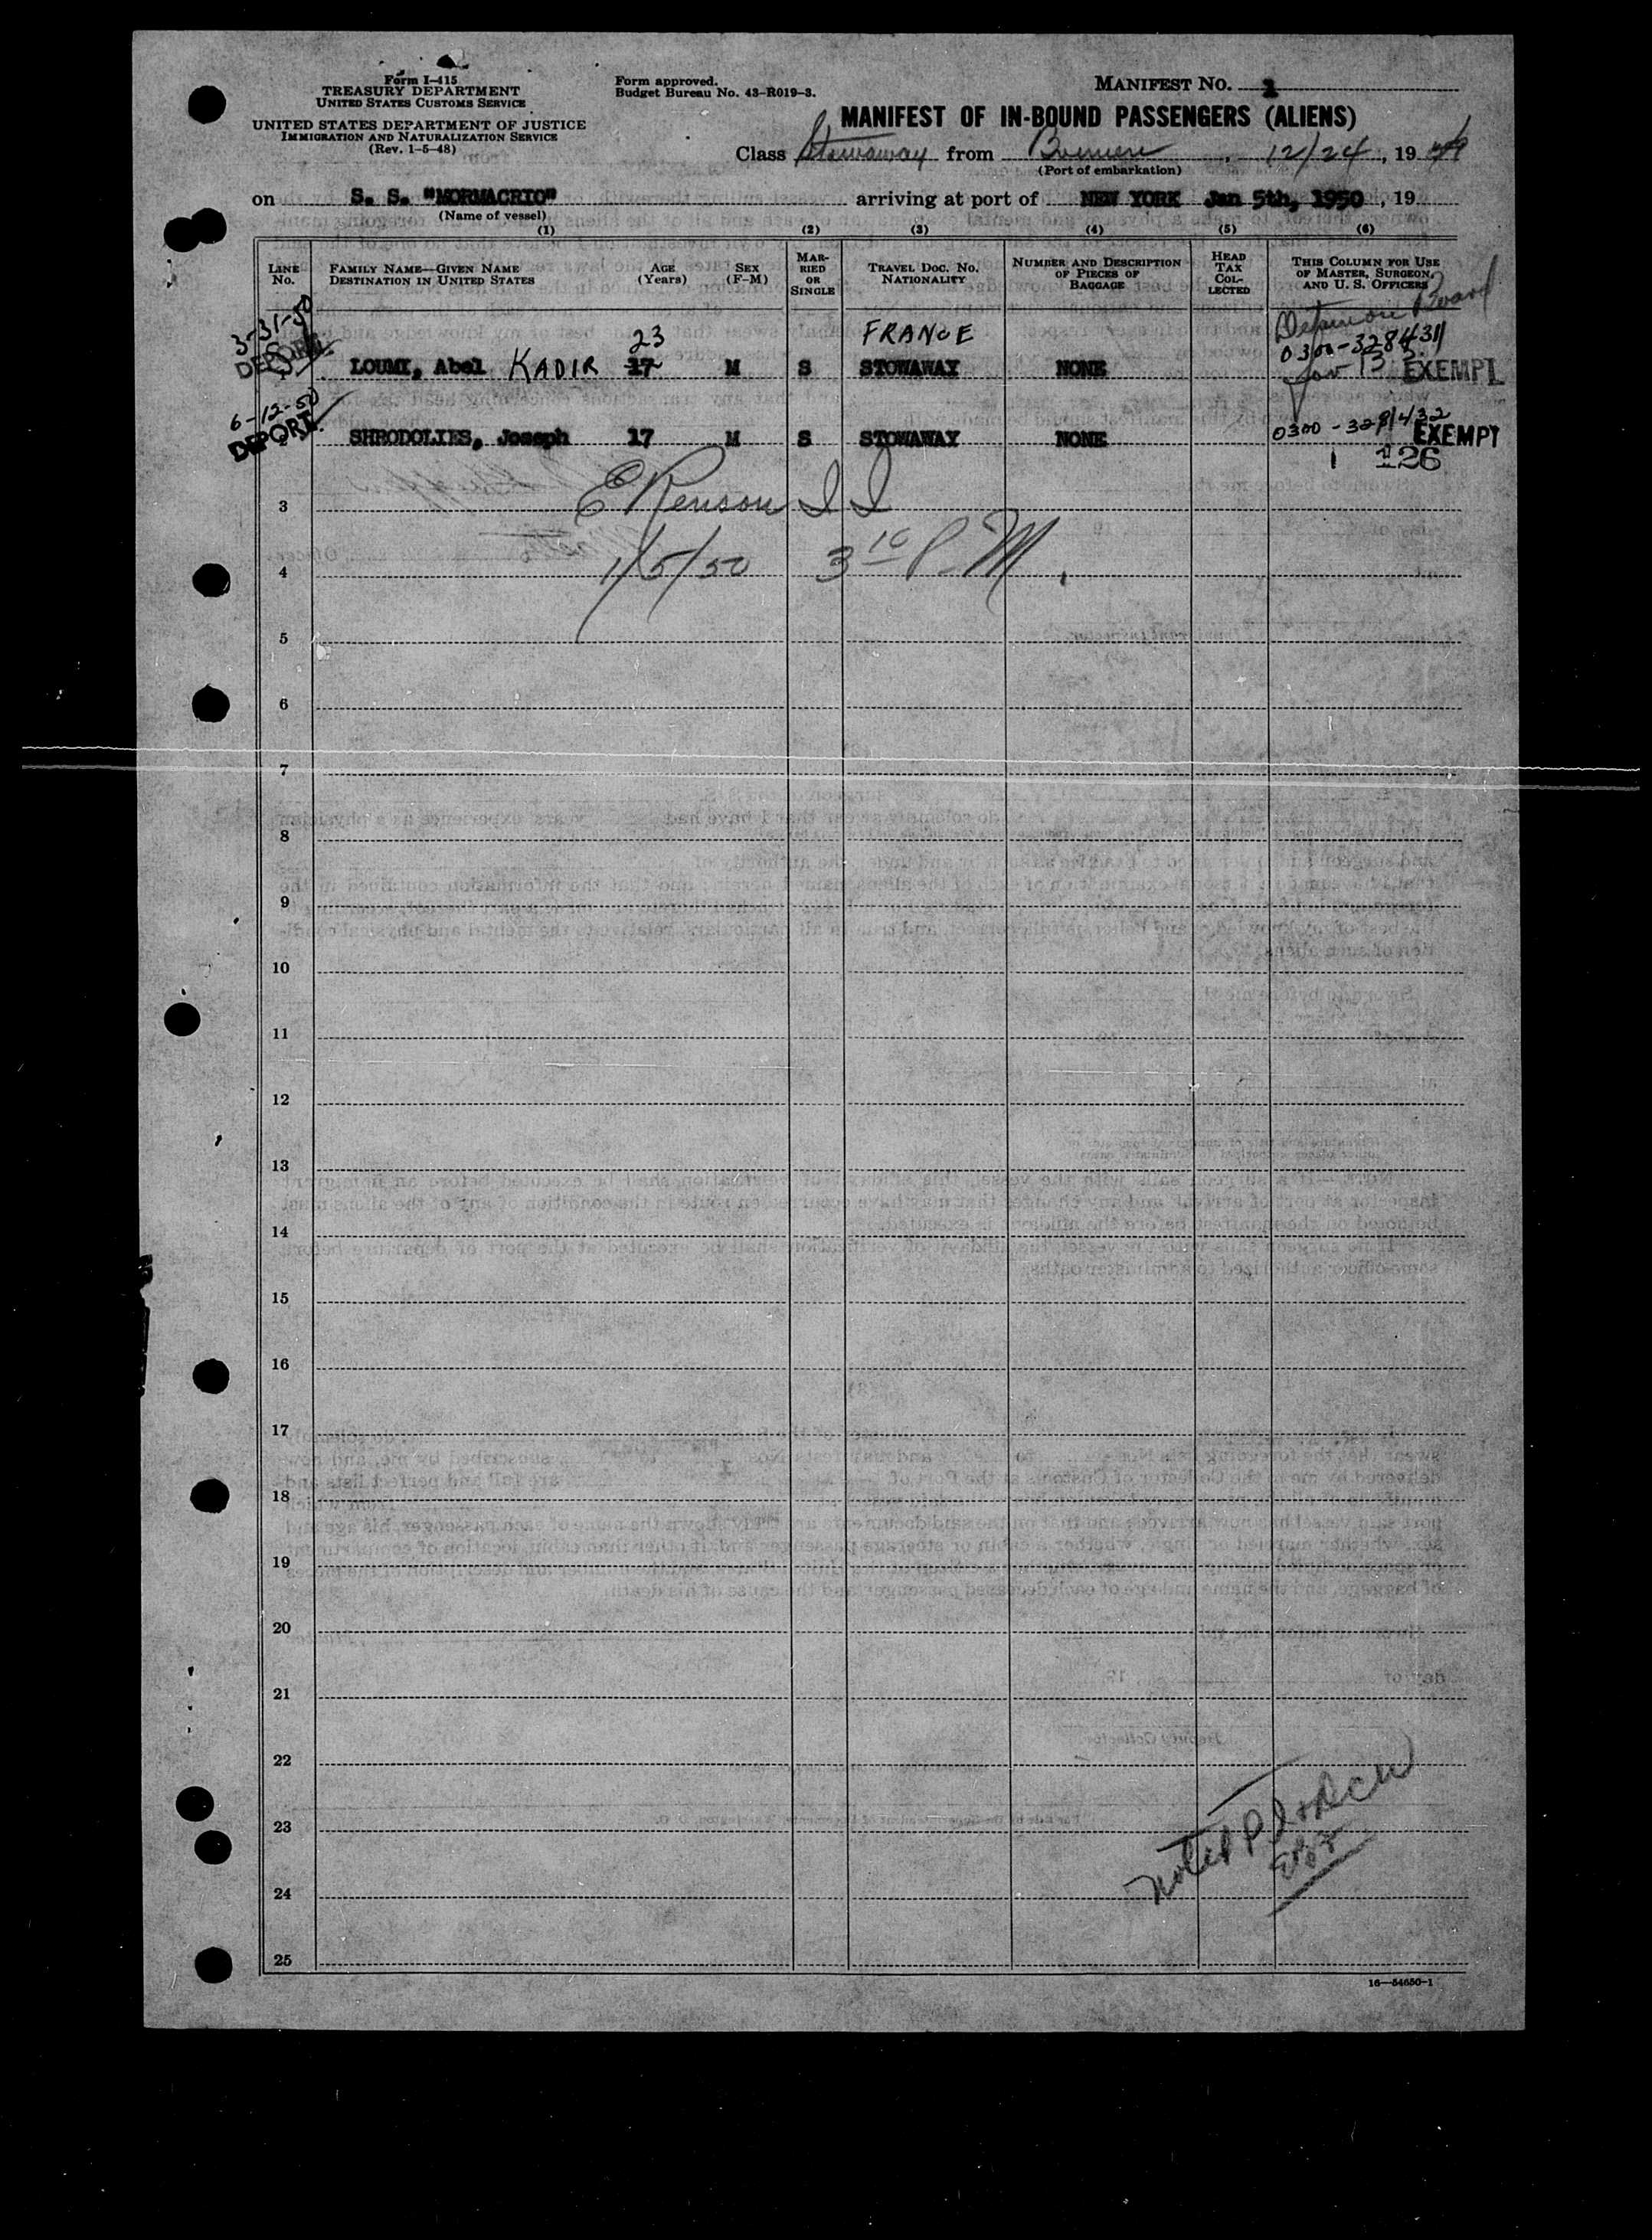 Form I-415
TREASURY DEPARTMENT
UNITED STATES CUSTOMS SERVICE
UNITED STATES DEPARTMENT OF JUSTICE
IMMIGRATION AND NATURALIZATION SERVICE
(Rev. 1-5-48)
Form approved.
Budget Bureau No. 43-R019-3.
MANIFEST NO. 1
MANIFEST OF IN-BOUND PASSENGERS (ALIENS)
Class Stowaway from Bremen, 12/24, 19 49
(Port of embarkation)
on S. S. "MORMACRIO" arriving at port of NEW YORK Jan 5th, 1950, 19
(Name of vessel)
(1) (2) (3) (4) (5) (6)
LINE NO.
FAMILY NAME—GIVEN NAME
DESTINATION IN UNITED STATES
AGE (Years)
SEX (F-M)
MARRIED OR SINGLE
TRAVEL DOC. NO.
NATIONALITY
NUMBER AND DESCRIPTION OF PIECES OF BAGGAGE
HEAD TAX COLLECTED
THIS COLUMN FOR USE OF MASTER, SURGEON, AND U. S. OFFICERS
Board
3-31-50
DEPORT.
23 FRANCE
0300-328431
LOUMI, Abel KADIR 17 M S STOWAWAY NONE
EXEMPT
6-12-50
DEPORT.
SHRODOLIES, Joseph 17 M S STOWAWAY NONE
0300-328432
EXEMPT
126
3
E Renson I I
4
1/5/50 3 10 P.M.
5
6
7
8
9
10
11
12
13
14
15
16
17
18
19
20
21
22
23
noted
24
25
16—54650-1